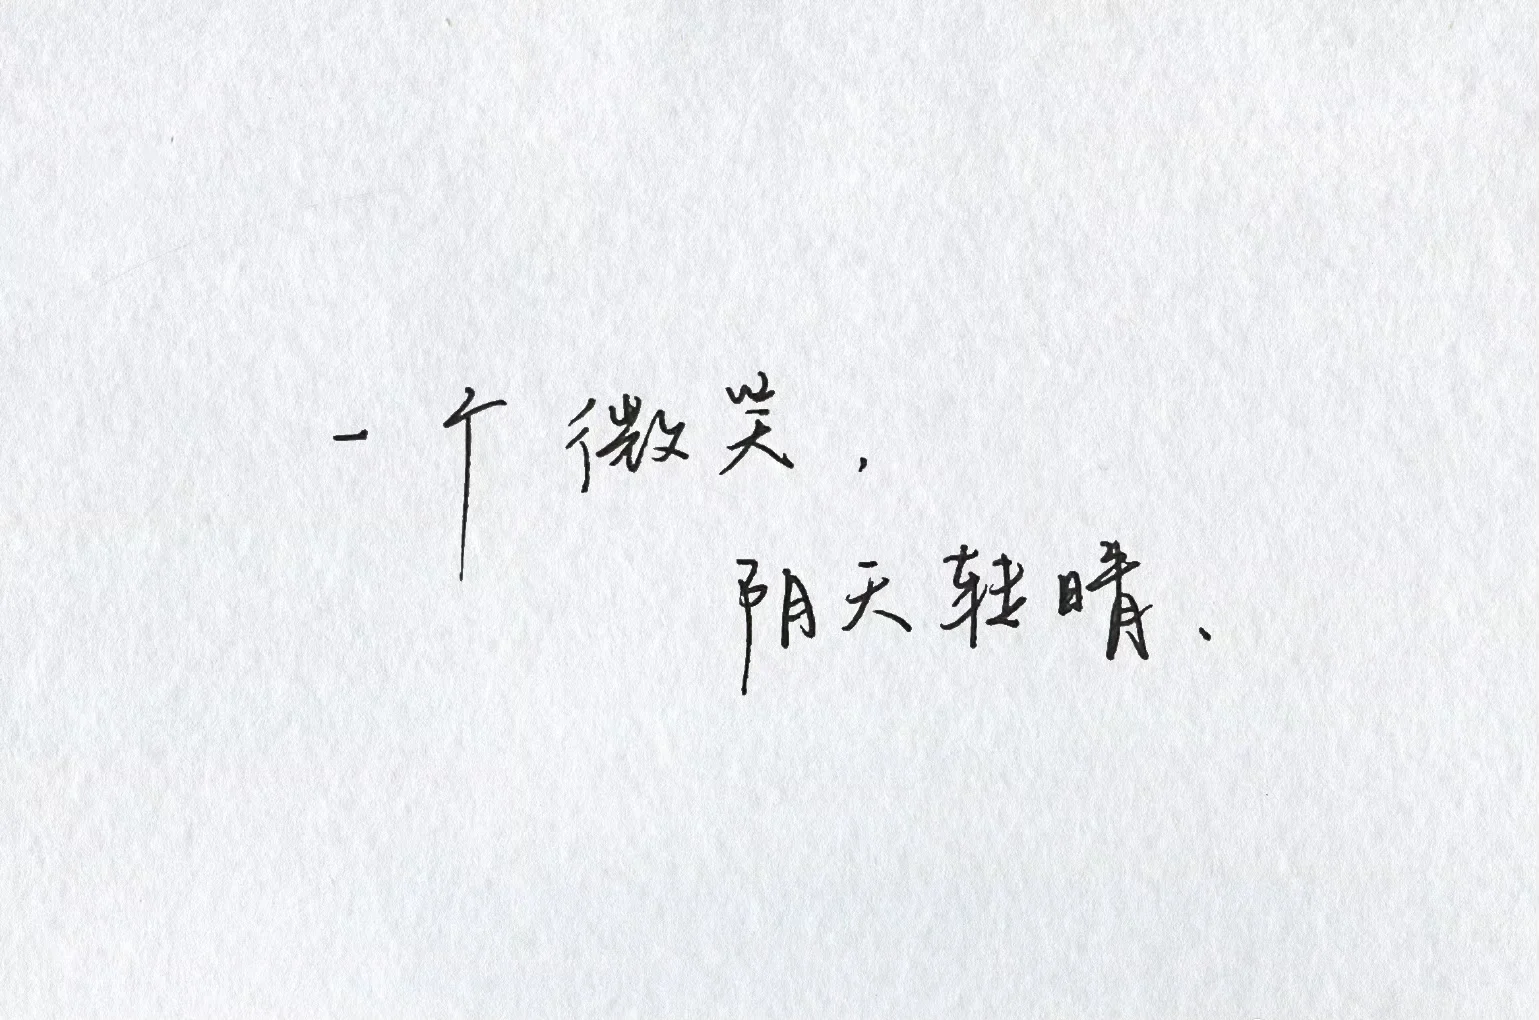 一个微笑，
阴天转晴、